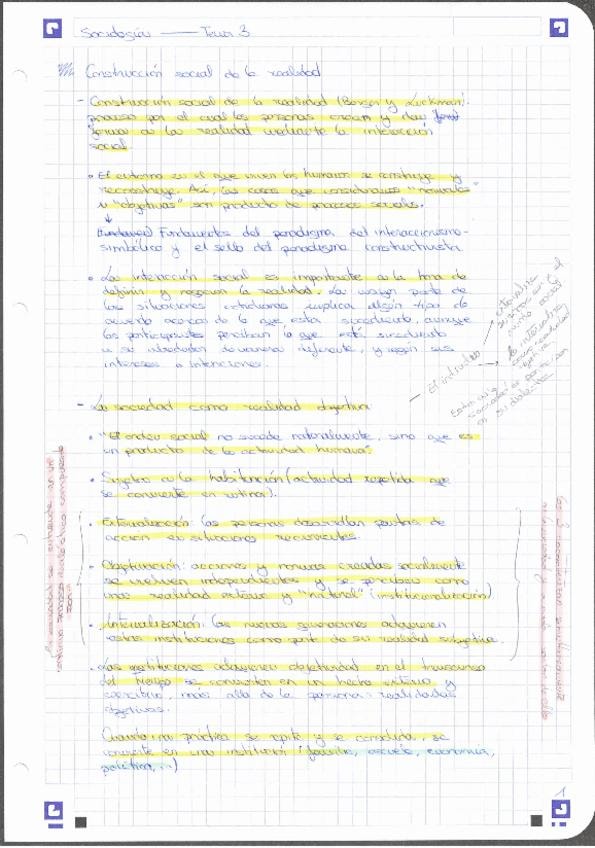 Sociología — Tema 3
Construcción social de la realidad
- Construcción social de la realidad (Berger y Luckman):
proceso por el cual las personas crean y dan
forma a la realidad mediante la interacción
social.
• El entorno en el que viven los humanos se construye y
reconstruye. Así, las cosas que consideramos "normales"
u "objetivas" son producto de procesos sociales.
↓
Fundamentos del paradigma del interaccionismo-
simbólico y el sello del paradigma constructivista
• La interacción social es importante a la hora de
definir y negociar la realidad. La mayor parte de
las situaciones cotidianas implica algún tipo de
acuerdo acerca de lo que está sucediendo, aunque
los participantes perciban lo que está sucediendo
de manera diferente, y según sus
intereses o intenciones.
— El individuo
- La sociedad como realidad objetiva
• "El orden social no sucede naturalmente, sino que es
un producto de la actividad humana".
• Sujeto a la habituación (actividad repetida que
se convierte en rutina).
• Externalización: las personas desarrollan pautas de
acción en situaciones recurrentes.
• Objetivación: acciones y normas creadas socialmente
se vuelven independientes y se perciben como
una realidad externa y "natural" (institucionalización)
• Internalización: las nuevas generaciones adquieren
estas instituciones como parte de su realidad subjetiva.
• Las instituciones adquieren objetividad en el transcurso
del tiempo se convierten en un hecho externo y
coercitivo, más allá de la persona: realidades
objetivas.
Cuando una práctica se repite y se consolida, se
convierte en una institución (familia, escuela, economía,
política, ...)
1